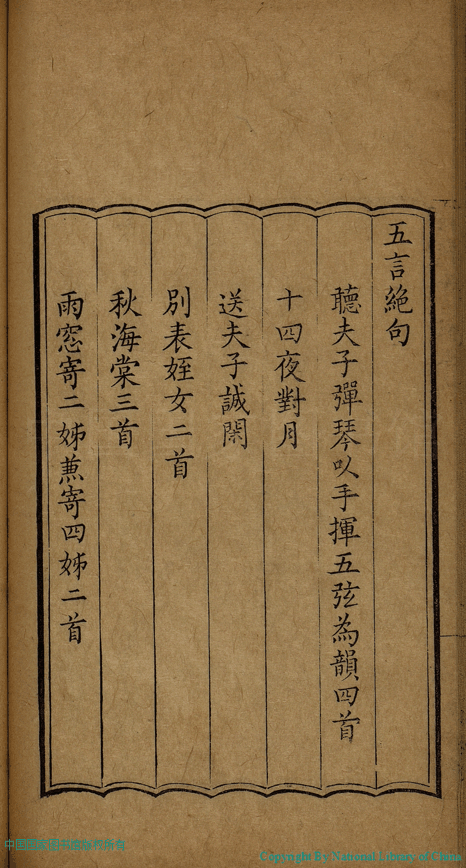 五言絕句
聽夫子彈琴以手揮五弦為韻四首
十四夜對月
送夫子誠閑
別表姪女二首
秋海棠三首
雨窓寄二姊蕙寄四姊二首
Copyright By National Library of China